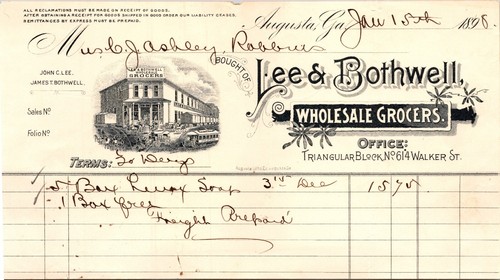 ALL RECLAMATIONS MUST BE MADE ON RECEIPT OF GOODS.
AFTER OBTAINING A RECEIPT FOR GOODS SHIPPED IN GOOD ORDER OUR LIABILITY CEASES.
REMITTANCES BY EXPRESS MUST BE PREPAID.
Augusta, Ga Jan 15th 1898.
M J Ashley, Robbins
JOHN C. LEE.
JAMES T. BOTHWELL.
Sales No
Folio No
GROCERS
BOUGHT OF
Lee & Bothwell,
WHOLESALE GROCERS.
OFFICE:
TRIANGULAR BLOCK, No 614 WALKER ST.
TERMS: 30 Days
5 Box Lenox Soap 315 Dec 1575
1 Box free
Freight Prepaid